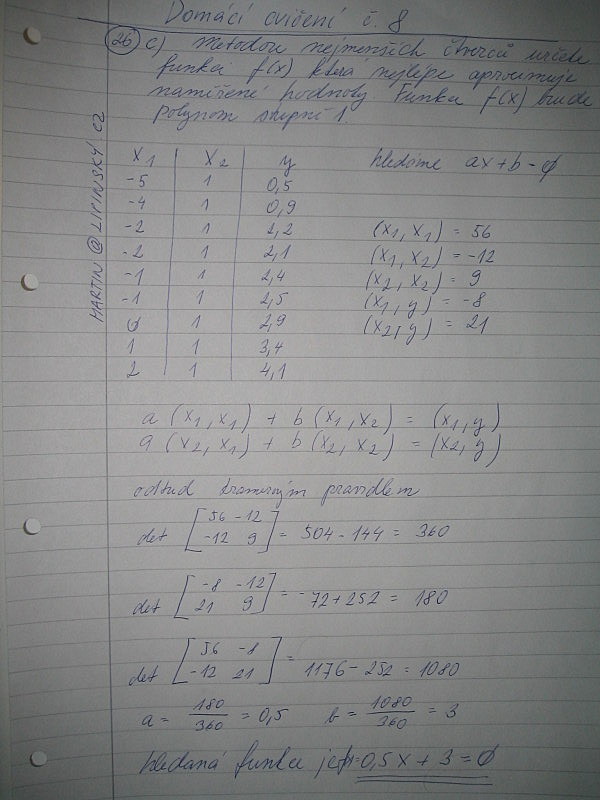 Domácí cvičení č. 8
26 c) Metodou nejmenších čtverců určete
funkci f(x) která nejlépe aproximuje
naměřené hodnoty Funkce f(x) bude
polynom stupně 1
MARTIN @ LIPINSKÝ CZ
x1 x2 y hledáme ax + b = 0
-5 1 0,5
-4 1 0,9
-2 1 2,2 (x1, x1) = 56
-2 1 2,1 (x1, x2) = -12
-1 1 2,4 (x2, x2) = 9
-1 1 2,5 (x1, y) = -8
0 1 2,9 (x2, y) = 21
1 1 3,4
2 1 4,1
a (x1, x1) + b (x1, x2) = (x1, y)
a (x2, x1) + b (x2, x2) = (x2, y)
odtud kramerovým pravidlem
det [56 -12
-12 9] = 504 - 144 = 360
det [-8 -12
21 9] = -72 + 252 = 180
det [56 -8
-12 21] = 1176 - 252 = 1080
a = 180/360 = 0,5 b = 1080/360 = 3
hledaná funkce je 0,5x + 3 = 0